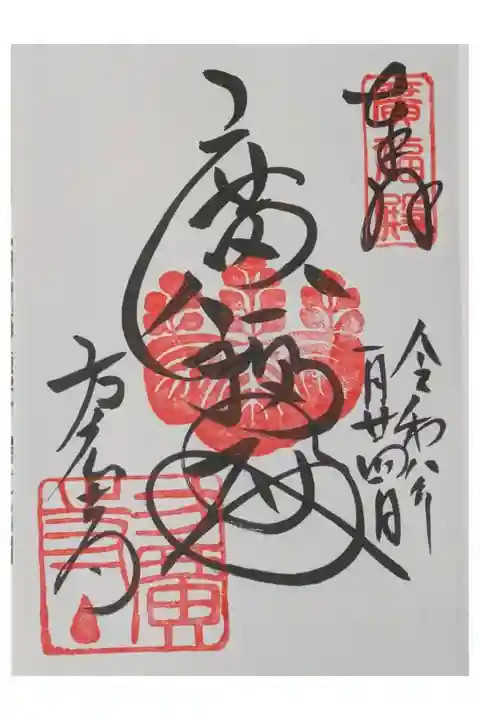 奉拝
廣福殿
令和八年
一月廿四日
廣福殿
方廣寺
方廣寺